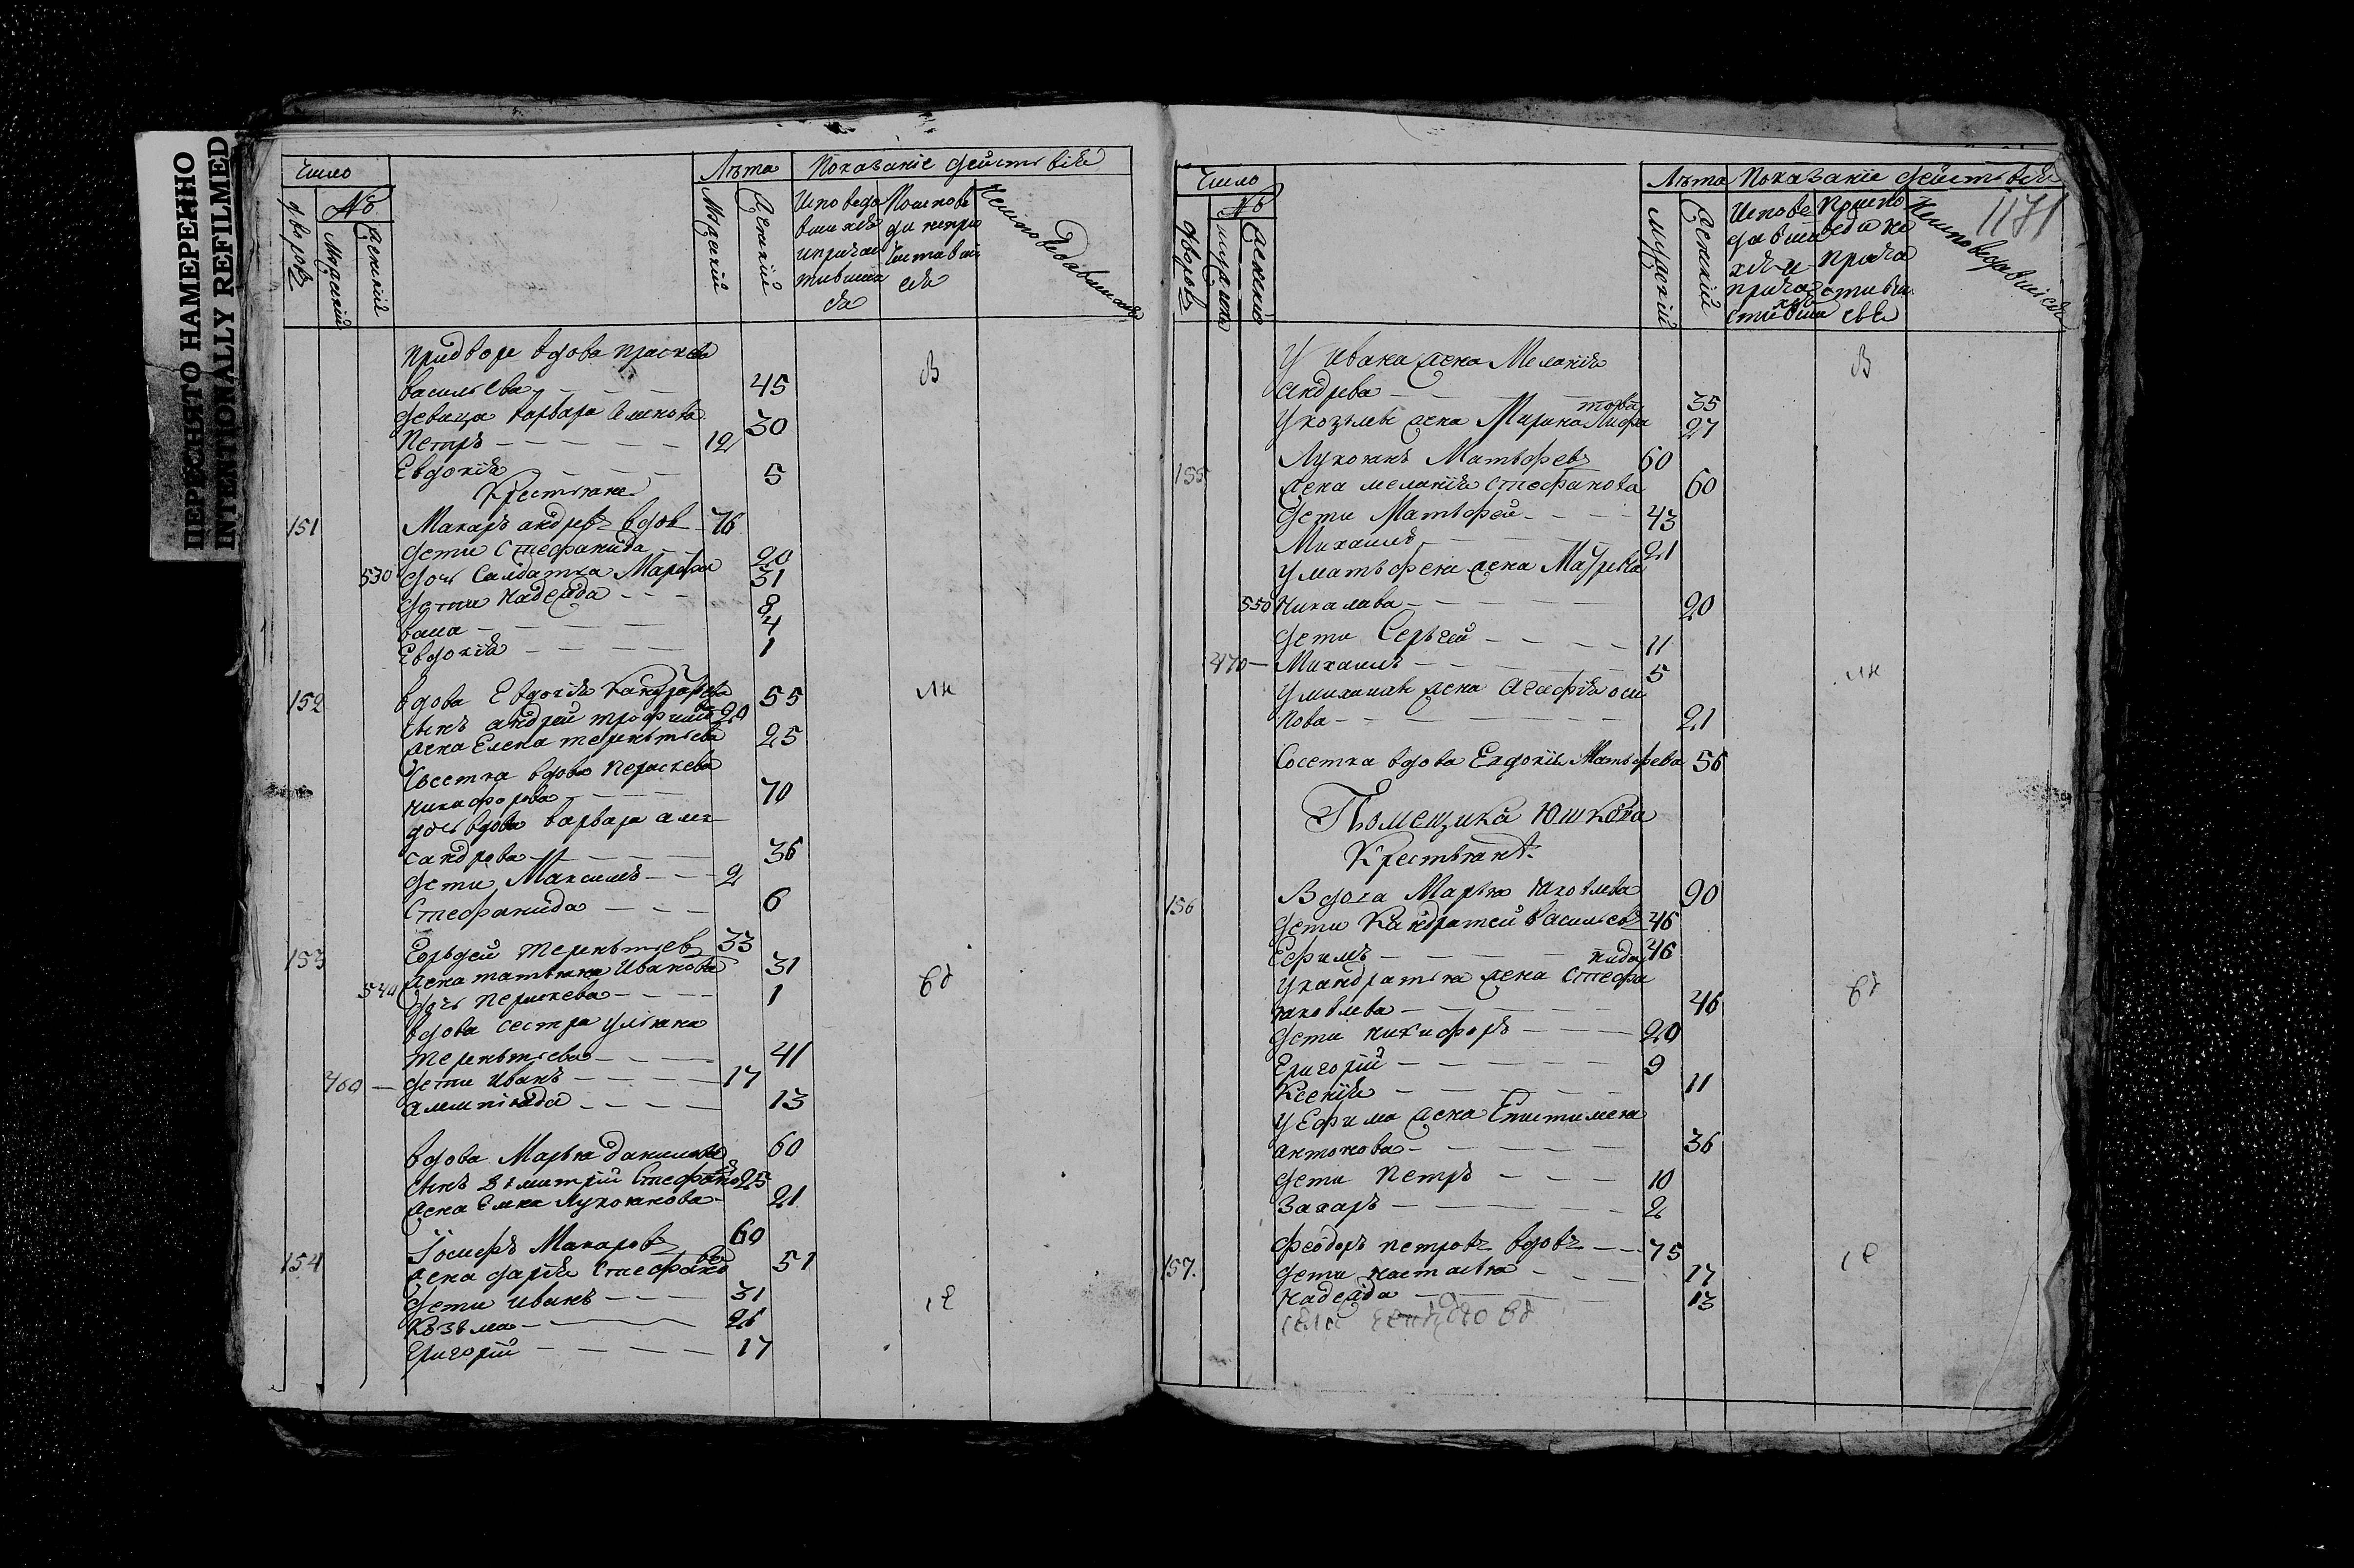 ПЕРЕСНЯТО НАМЕРЕННО
INTENTIONALLY REFILMED
Число
№
дворовъ
Мускій
Женскій
Лѣта
Мускій
Женскій
Показаніе действія
Исповедо
вшихъ
и причас
тивших
ся
По испове
ди не при
частивши
ся
Неисповедавшихся
При дворе вдова праскева
васильева 45
в
девица варвара Семенова 30
Петръ 12
Евдокія 5
Крестьяне
151 Макаръ андревъ вдов 76
дети Стефанида 20
530 дочь Салдатка Марфа 31
дети надежда 8
васа 4
Евдокія 1
152 вдова Евдокія 55
ли
сынъ андрей трофимовъ 20
жена Елена терентьева 25
Сосетка вдова Пераскева
никифорова 70
дочь вдова варвара алек
сандрова 36
дети Максимъ 2
Стефанида 6
153 Гордей терентьевъ 33
жена татьяна Иванова 31
540 дочь Пераскева 1
вдова сестра ульяна
терентьева 41
460 дети Иванъ 17
алимпіада 13
вдова Марья данилова 60
сынъ Дъмитрій Стефановъ 25
жена Елена Лукоянова 21
154 Іосифъ Макаровъ 60
жена дарія Стефанова 51
дети иванъ 31
Козьма 26
Григорій 17
1171
Число
№
дворовъ
мускова
женско
Лѣта
мускій
Женскій
Показаніе действія
Испове
давши
хся и
прича
стивши
хся
По испо
веди не
прича
стивши
ся
Неисповедавшіся
У ивана жена Меланія
андрева 35
в
У козьмы жена Марина Лифантова 27
155 Лукоянъ Матвѣфевъ 60
жена меланія стефанова 60
дети Матвѣфей 43
Михаилъ 21
У матвѣфея жена Мавра
550 Николава 20
дети Сергей 11
470 Михаилъ 5
ли
У михаила жена Агафія оси
пова 21
Сосетка вдова Евдокія Матвѣфева 56
Помещика Юшкова
Крестьянѣ
156 Вдова Марья яковлева 90
дети Кандратей васильевъ 46
Ефимъ 46
У кандратья жена Стефанида
яковлева 46
дети никифоръ 20
Григорій 9
Ксенія 11
У Ефима жена Епистимея
антонова 36
дети Петръ 10
Захаръ 2
157. Феодоръ петровъ вдовъ 75
дети настасья 17
надежда 13